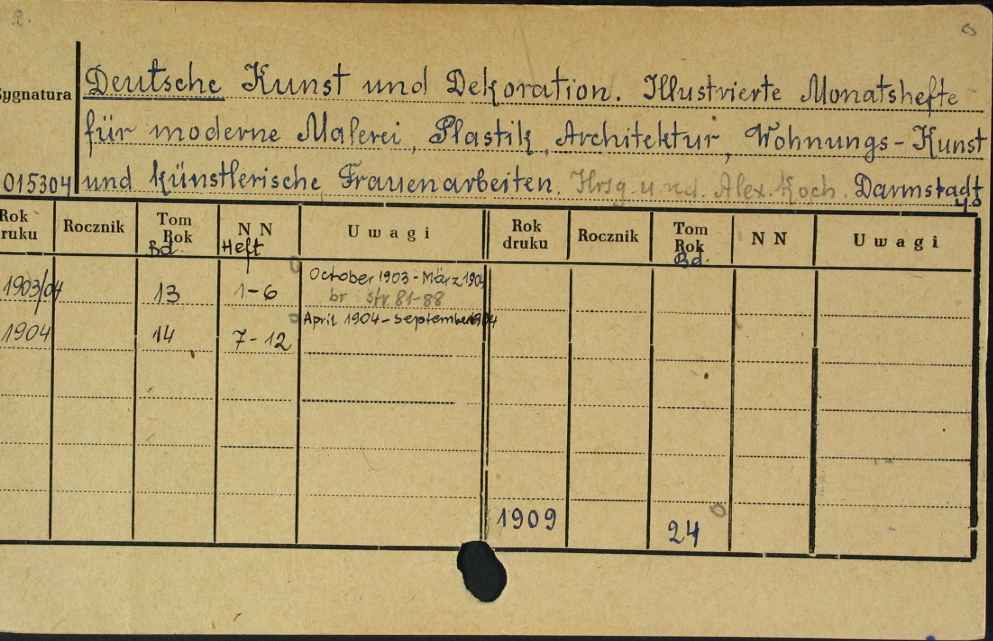 Sygnatura
Deutsche Kunst und Dekoration. Illustrierte Monatshefte
für moderne Malerei, Plastik, Architektur, Wohnungs-Kunst
015304 und künstlerische Frauenarbeiten. Hrsg. u. red. Alex. Koch. Darmstadt
Rok druku Rocznik Tom Rok Bd. N N Heft Uwagi Rok druku Rocznik Tom Rok Bd. N N Uwagi
1903/04 13 1-6 October 1903 - März 1904
br str 81-88
1904 14 7-12 April 1904 - September 1904
1909 24